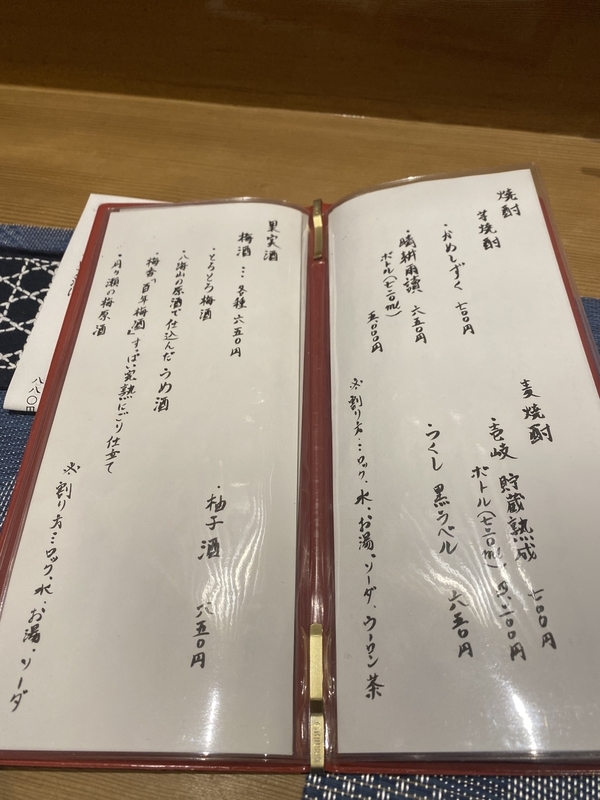 焼酎
芋焼酎
・かめしずく 七〇〇円
・晴耕雨讀 六五〇円
ボトル(七二〇ml) 五、〇〇〇円
麦焼酎
・壱岐 貯蔵熟成 七〇〇円
ボトル(七二〇ml) 四、二〇〇円
・つくし 黒ラベル 六五〇円
※割り方…ロック、水、お湯、ソーダ、ウーロン茶
果実酒
梅酒…各種六五〇円
・とろとろ梅酒
・八海山の原酒で仕込んだうめ酒
・梅香「百年梅酒」すっぱい完熟にごり仕立て
・月ヶ瀬の梅原酒
・柚子酒 六五〇円
※割り方…ロック、水、お湯、ソーダ
八八〇円